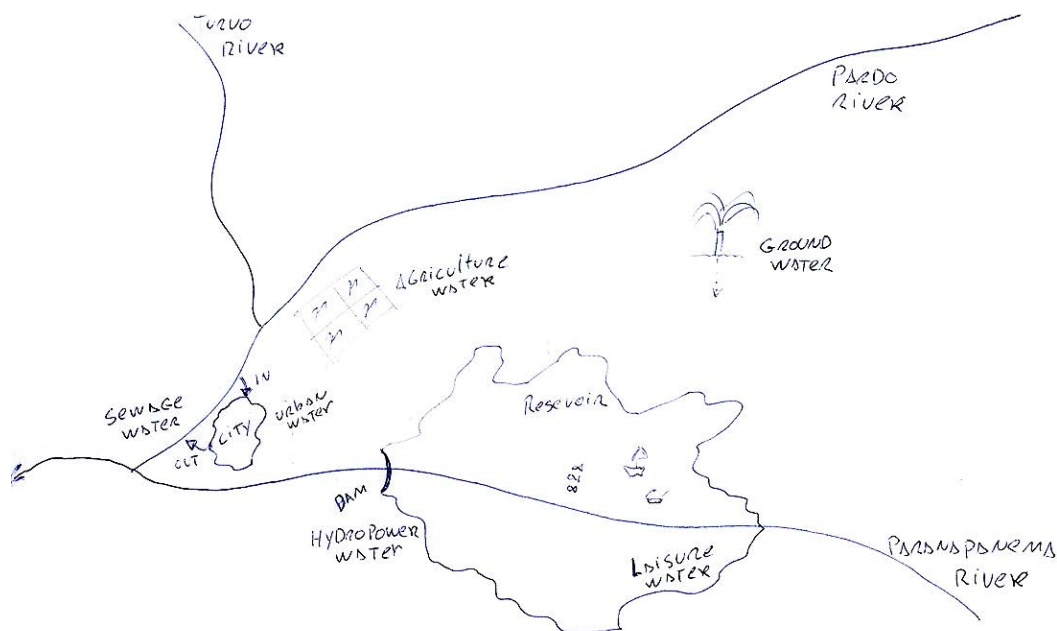 TURVO
RIVER
PARDO
RIVER
GROUND
WATER
AGRICULTURE
WATER
IN
SEWAGE
WATER
CITY
URBAN
WATER
OUT
RESEVOIR
DAM
HYDROPOWER
WATER
LAISURE
WATER
PARANAPANEMA
RIVER